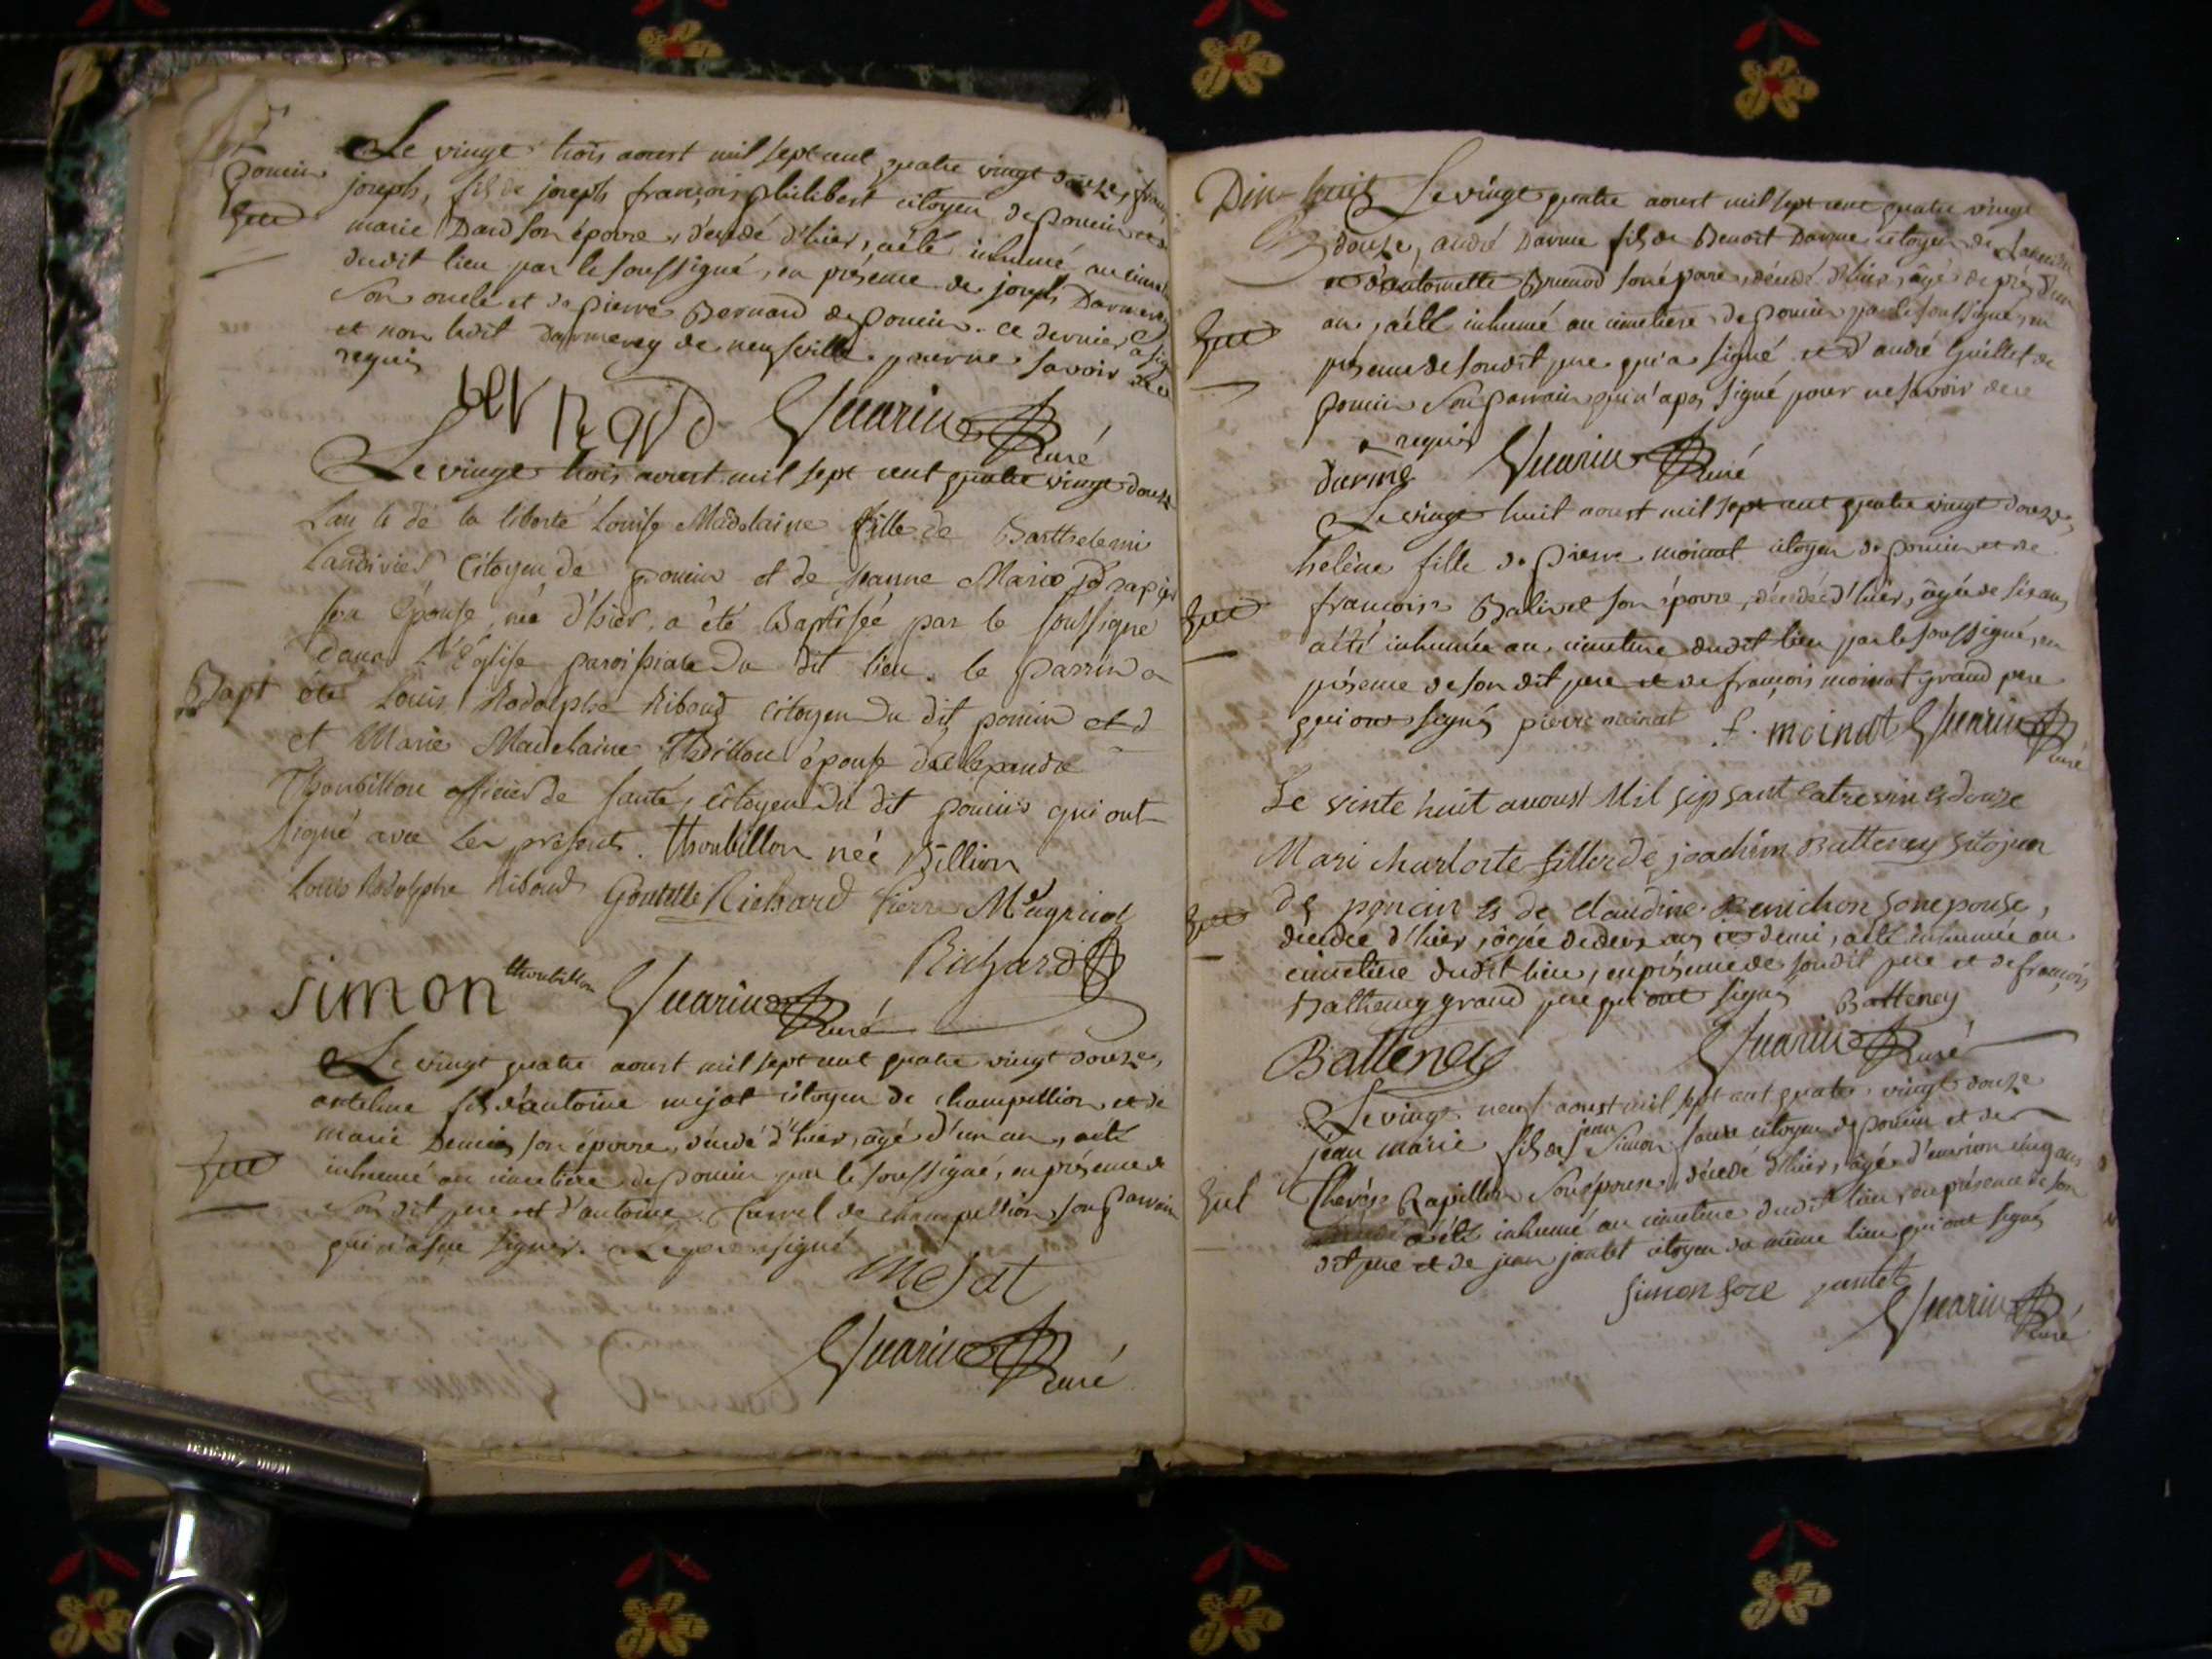 Poncin
Le vingt trois aoust mil sept cent quatre vingt douze,
joseph, fils de joseph françois philibert citoyen de poncin et
marie Dard son épouse, décédé d'hier, a été inhumé au
dudit lieu par le soussigné, en présence de joseph Darmerey
son oncle et de pierre Bernard de poncin. ce dernier a
et non ledit Darmerey de neufville pour ne savoir de ce
requis
bernard Guarin Curé
Le vingt trois aoust mil sept cent quatre vingt douze
L'an 4 de la liberté Louise Madelaine fille de Barthelemi
Landivier Citoyen de poncin et de jeanne Marie
son épouse, née d'hier, a été Baptisée par le soussigné
dans L'Eglise paroissiale du dit lieu. le parrin a
Bapt
été Louis Rodolphe Riboud citoyen du dit poncin et
et Marie Madelaine Billion épouse d'alexandre
Thoubillon officier de santé, citoyen du dit poncin qui ont
signé avec les présents. Thoubillon neé Billion
Louis Rodolphe Riboud Goutelle Richard Pierre
Richard
simon thoubillon Guarin Curé
Le vingt quatre aoust mil sept cent quatre vingt douze,
antelme fils d'antoine mejat citoyen de champellion et de
marie son épouse, décédé d'hier, âgé d'un an, a été
inhumé au cimetiere de poncin par le soussigné, en présence de
son dit pere et d'antoine de champellion son parrain
qui n'a sçu signer. Le pere a signé
mejat
Guarin Curé
Dix-huit
Le vingt quatre aoust mil sept cent quatre vingt
douze, andré Darme fils de Benoit Darme citoyen de
et d'antoinette Brunod son épouse, décédé d'hier, âgé de près d'un
an, a été inhumé au cimetiere de poncin par le soussigné, en
présence de son dit pere qui a signé et d'andré Guillet de
poncin son parrain qui n'a pas signé pour ne savoir de ce
requis
darme Guarin Curé
Le vingt huit aoust mil sept cent quatre vingt douze,
helène fille de pierre moinat citoyen de poncin et de
françoise Balivet son épouse, décédée d'hier, âgée de six ans,
a été inhumée au cimetiere dudit lieu par le soussigné, en
présence de son dit pere et de françois moinat grand pere
qui ont signés pierre moinat f. moinat Guarin Curé
Le vinte huit auoust Mil sip sant catrevin es douze
Mari charlorte filler de joachim Batteney sitojien
de poncin es de claudine son epouse,
décédée d'hier, âgée de deux ans et demi, a été inhumée au
cimetiere dudit lieu, en présence de son dit pere et de françois
Batheney grand pere qui ont signés Batteney
Batteney Guarin Curé
Le vingt neuf aoust mil sept cent quatre vingt douze
jean marie fils de jean Simon citoyen de poncin et de
Therèse Rapillon son épouse, décédé d'hier, âgé d'environ cinq ans
a été inhumé au cimetiere dudit lieu, en présence de son
dit pere et de jean jantet citoyen du même lieu qui ont signés
simon sore jantet
Guarin Curé